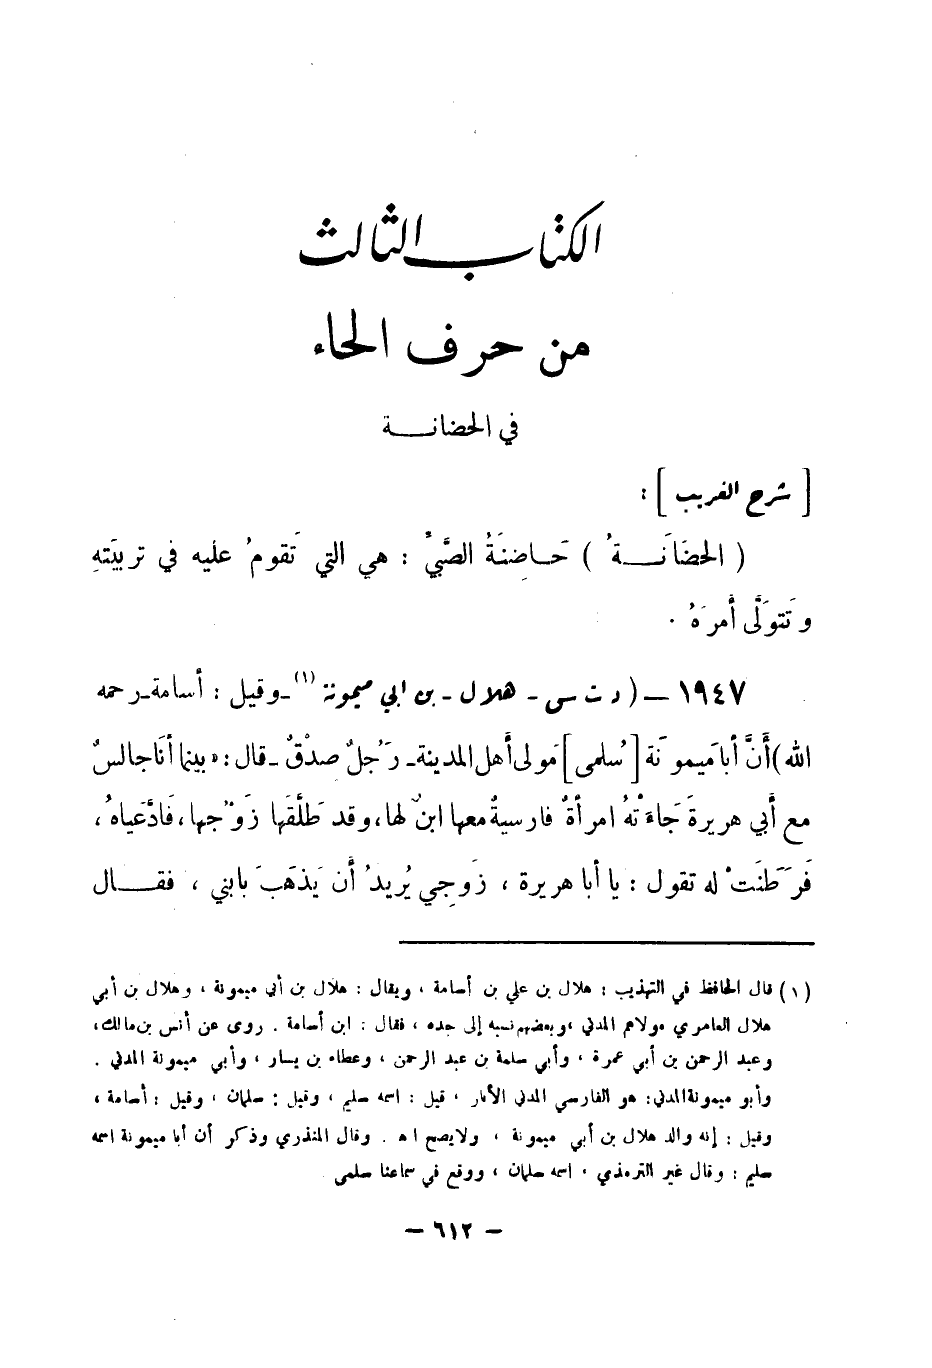 الكتاب الثالث
من حرف الحاء
في الحضانة
[ شرح الغريب ] :
( الحضَانَةُ ) حَاضِنَةُ الصَّبيِّ : هي التي تَقومُ عليه في تربيَتهِ
وتَتوَلَّى أَمرَهُ .
١٩٤٧ — ( د ت س - هلال - بن ابي ميمونة (١) - وقيل : أسامة - رحمه
الله ) أَنَّ أبا مَيمونَة [ سُلمى ] مَولى أهل المدينة - رَجُلٌ صِدْقٌ - قال : « بينما أنا جالسٌ
مع أبي هريرةَ جَاءَتْهُ امرأةٌ فارسيةٌ معها ابنٌ لها ، وقد طَلَّقَها زَوْجها ، فَادَّعَياهُ ،
فَرَطَنَتْ له تقول : يا أبا هريرة ، زَوجي يُريدُ أن يَذهَبَ بابني ، فقال
(١) قال الحافظ في التهذيب : هلال بن علي بن أسامة ، ويقال : هلال بن أبي ميمونة ، وهلال بن أبي
هلال العامري مولاهم المدني ، وبعضهم نسبه إلى جده ، فقال : ابن أسامة . روى عن أنس بن مالك ،
وعبد الرحمن بن أبي عمرة ، وأبي سلمة بن عبد الرحمن ، وعطاء بن يسار ، وأبي ميمونة المدني .
وأبو ميمونة المدني : هو الفارسي المدني الأبار ، قيل : اسمه سليم ، وقيل : سلمان ، وقيل : أسامة ،
وقيل : إنه والد هلال بن أبي ميمونة ، ولا يصح اه . وقال المنذري وذكر أن أبا ميمونة اسمه
سليم : وقال غير الترمذي ، اسمه سلمان ، ووقع في سماعنا سلمى
- ٦١٢ -